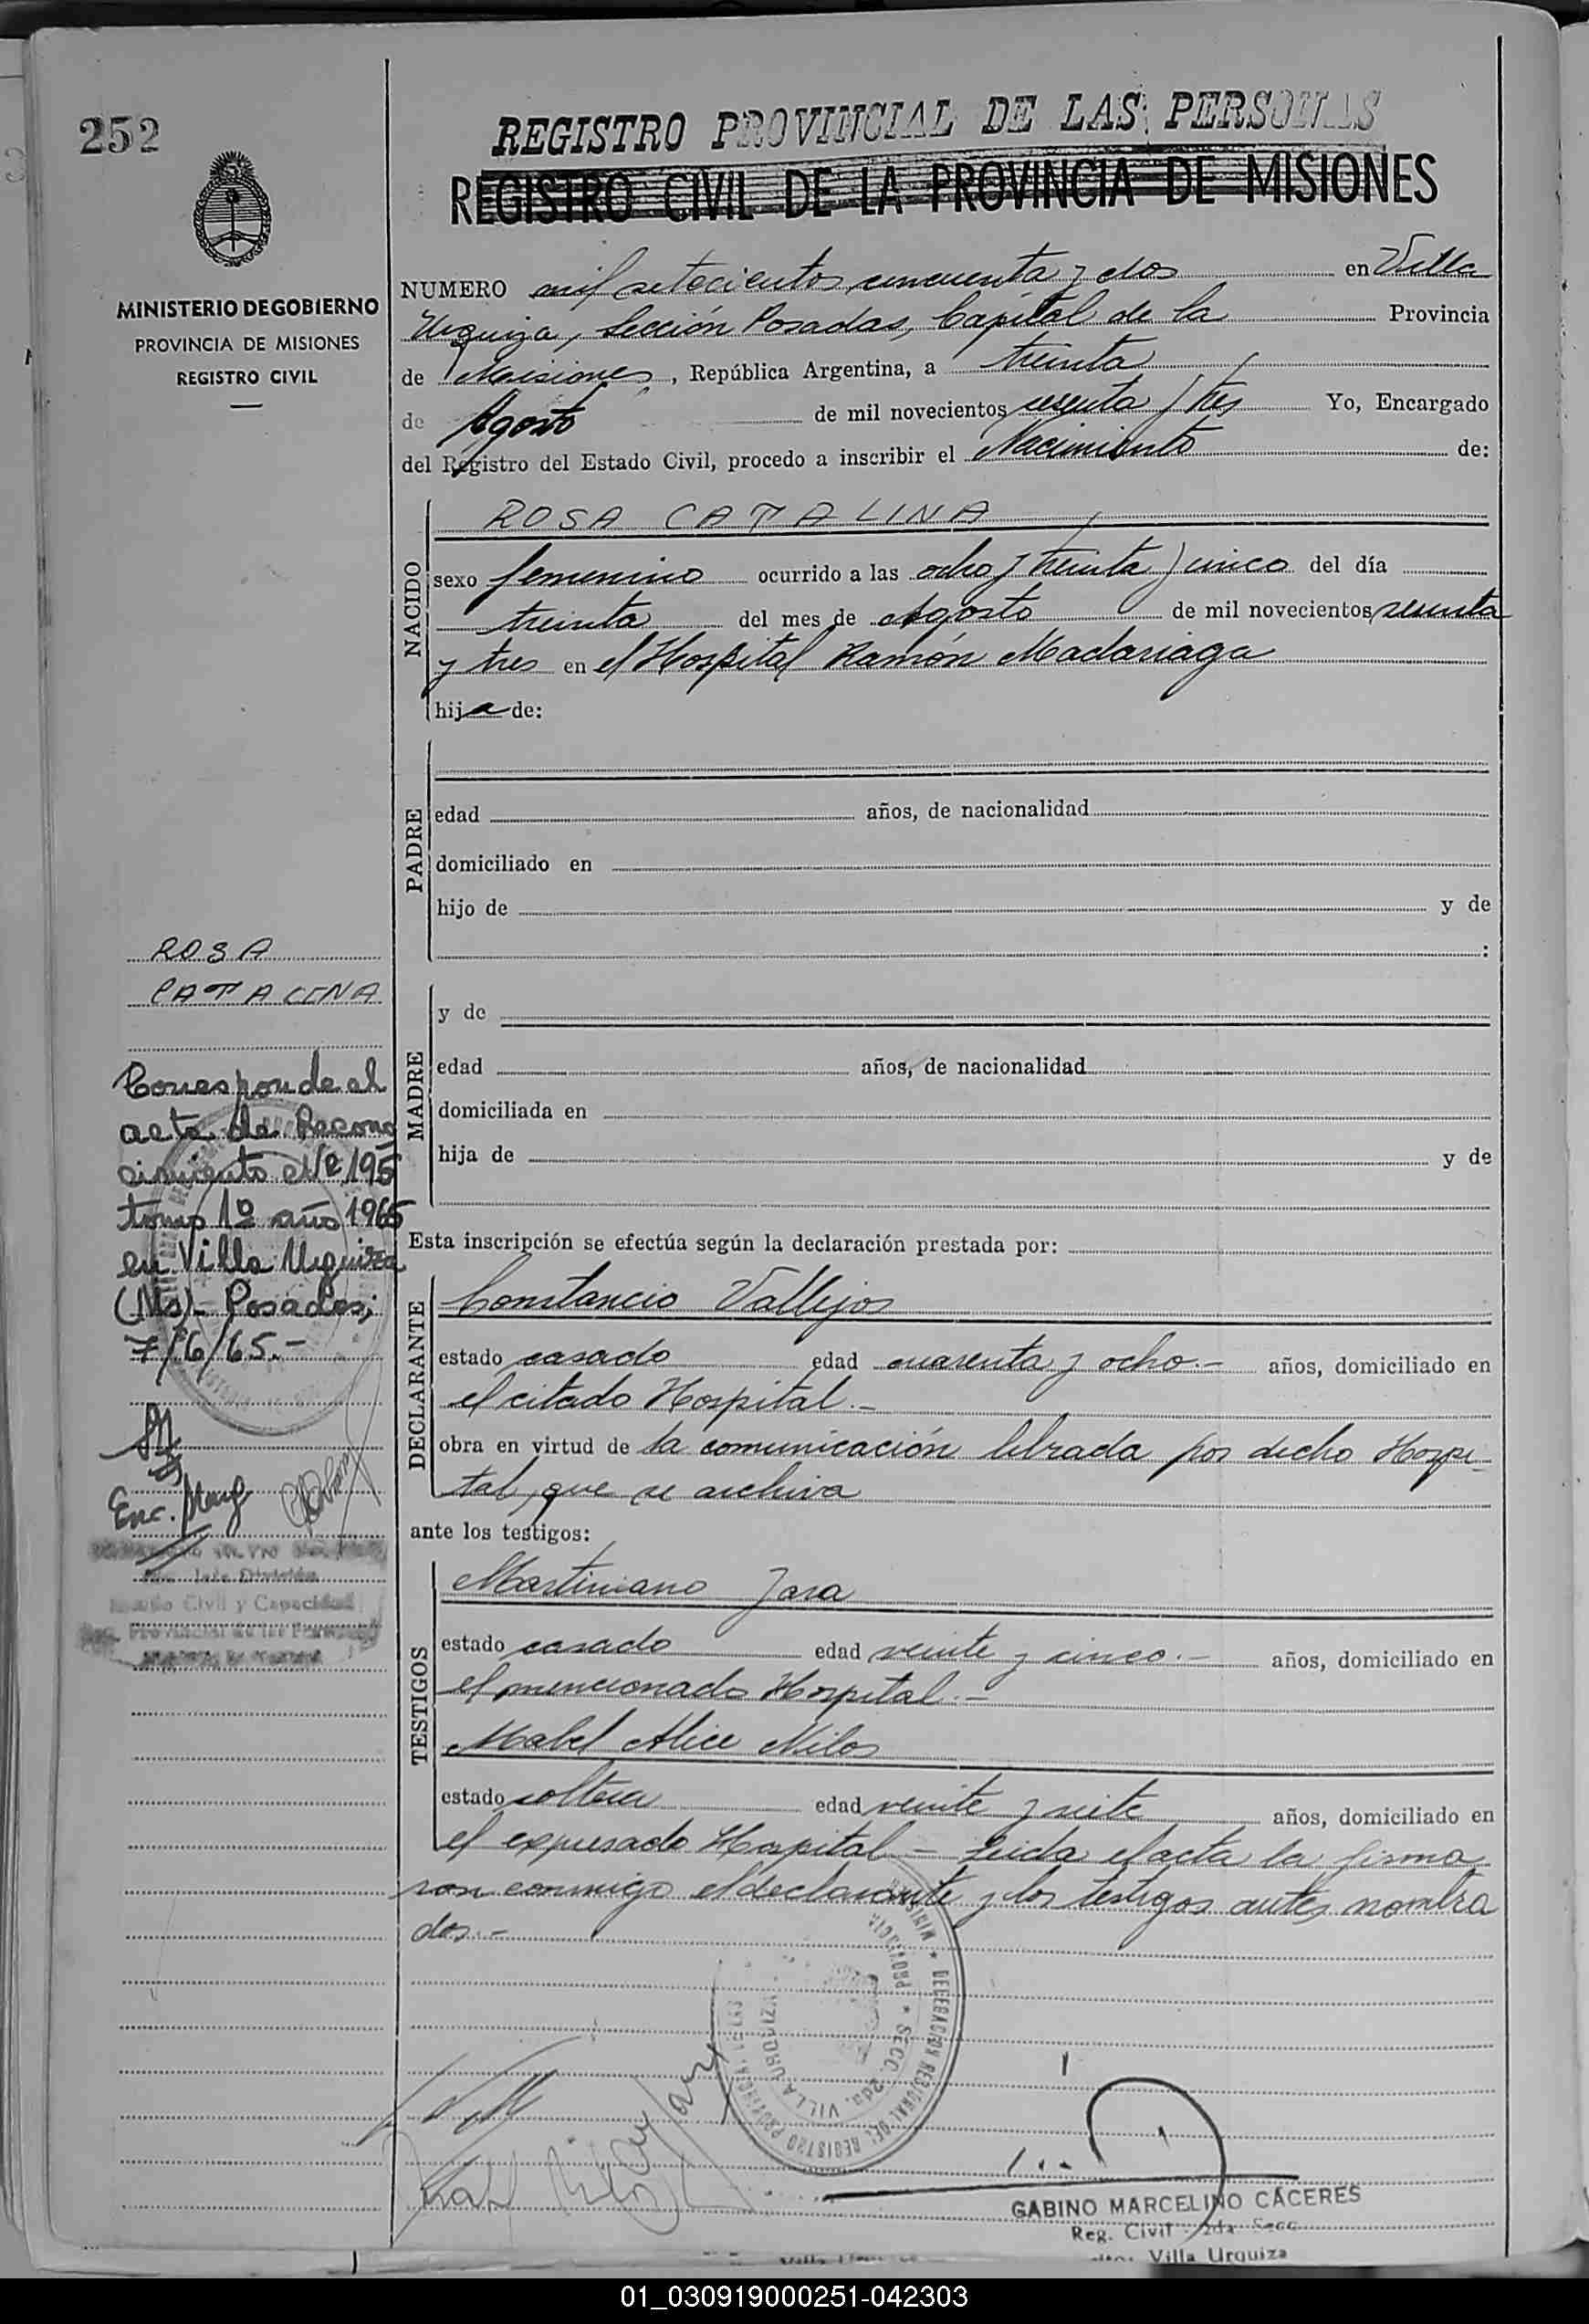 252
REGISTRO PROVINCIAL DE LAS PERSONAS
REGISTRO CIVIL DE LA PROVINCIA DE MISIONES
MINISTERIO DE GOBIERNO
PROVINCIA DE MISIONES
REGISTRO CIVIL
NUMERO mil setecientos cincuenta y dos en Villa
Urquiza, Sección Posadas, Capital de la Provincia
de Misiones, República Argentina, a treinta
de Agosto de mil novecientos sesenta y tres Yo, Encargado
del Registro del Estado Civil, procedo a inscribir el Nacimiento de:
NACIDO
ROSA CATALINA
sexo femenino ocurrido a las ocho y treinta y cinco del día
treinta del mes de Agosto de mil novecientos sesenta
y tres en el Hospital Ramón Madariaga
hija de:
PADRE
edad años, de nacionalidad
domiciliado en
hijo de y de
:
MADRE
y de
edad años, de nacionalidad
domiciliada en
hija de y de
Esta inscripción se efectúa según la declaración prestada por:
DECLARANTE
Constancio Vallejos
estado casado edad cuarenta y ocho.- años, domiciliado en
el citado Hospital.-
obra en virtud de la comunicación librada por dicho Hospi-
tal, que se archiva
ante los testigos:
TESTIGOS
Martiniano Jara
estado casado edad veinte y cinco.- años, domiciliado en
el mencionado Hospital.-
Mabel Alice Milos
estado soltera edad veinte y siete años, domiciliado en
el expresado Hospital.- Leida el acta la firma
ron conmigo el declarante y los testigos antes nombra
dos.-
ROSA
CATALINA
Corresponde al
acta de Recono
cimiento Nº 195
tomo 1º año 1965
en Villa Urquiza
(Ms)- Posadas,
7/6/65.-
Enc.
Civil y Capacidad
DELEGACION REGIONAL DEL REGISTRO PROVINCIAL
SECC. 2da. VILLA URQUIZA
GABINO MARCELINO CACERES
Reg. Civil 2da Secc
Villa Urquiza
01_030919000251-042303